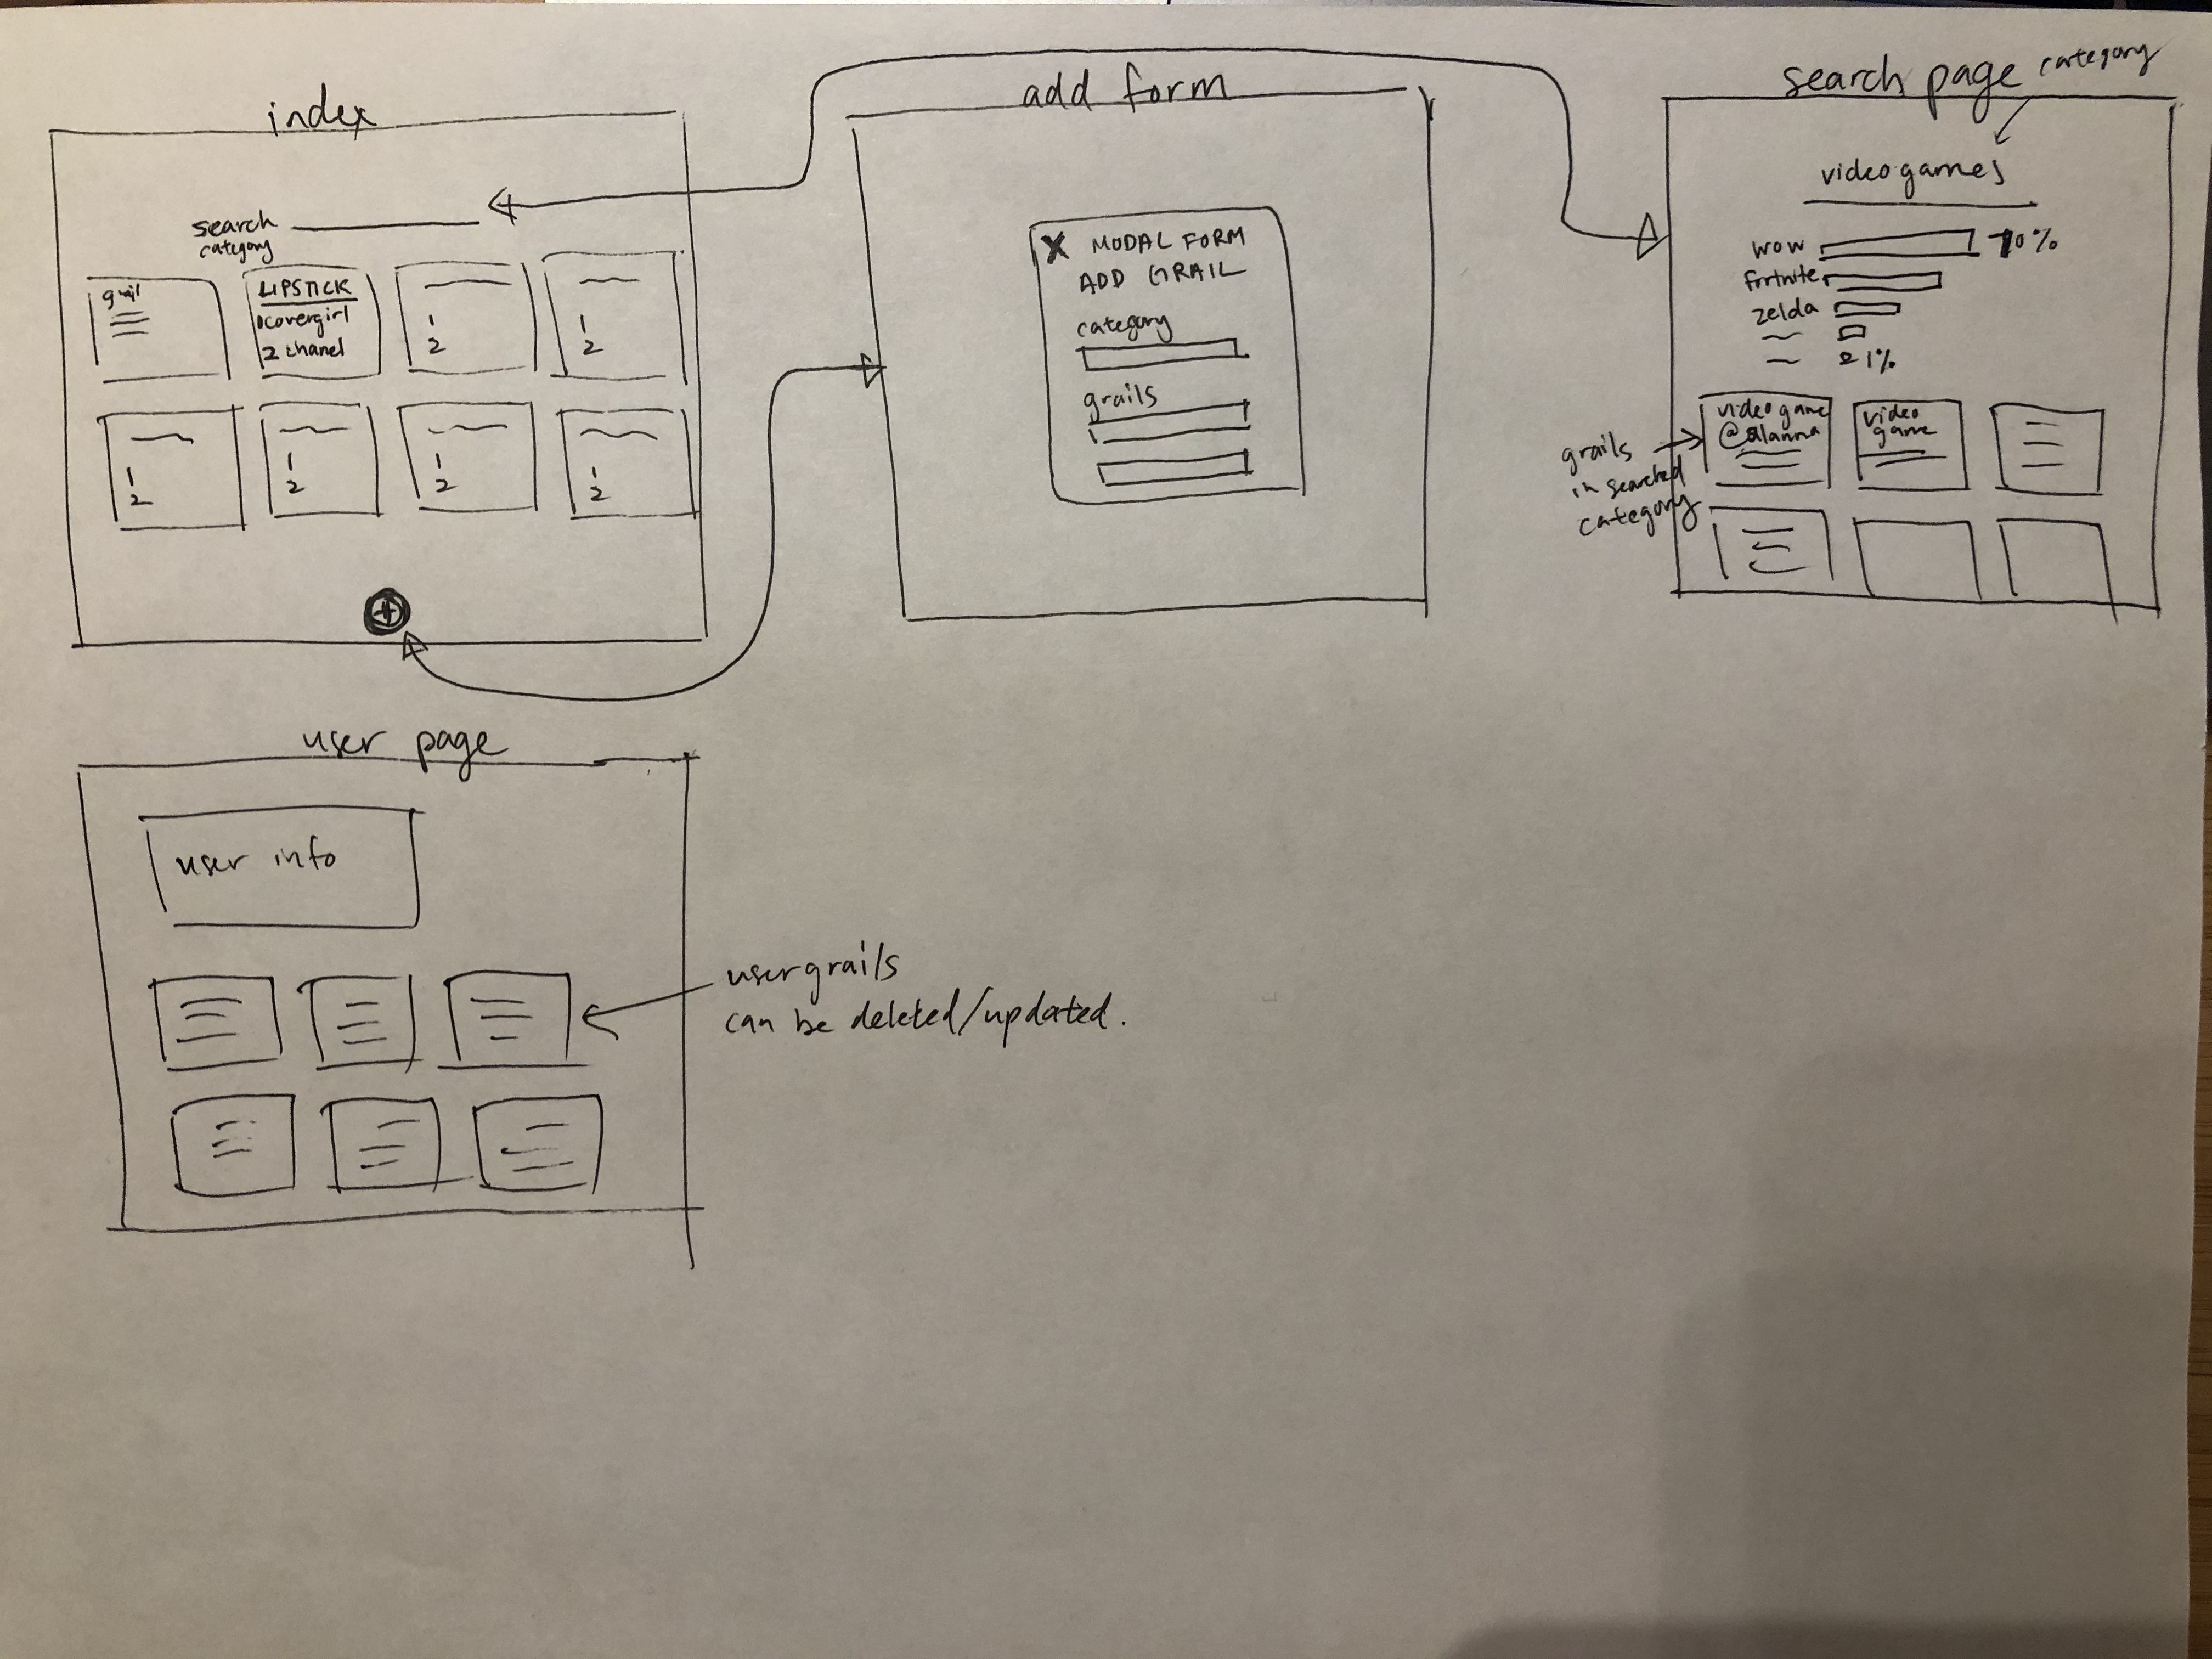 index
search
category
grail
LIPSTICK
1 covergirl
2 chanel
1
2
1
2
1
2
1
2
1
2
1
2
+
add form
X MODAL FORM
ADD GRAIL
category
grails
search page
category
videogames
wow 70%
fortnite
zelda
1%
grails
in searched
category
video game
@alanna
video
game
user page
user info
user grails
can be deleted/updated.